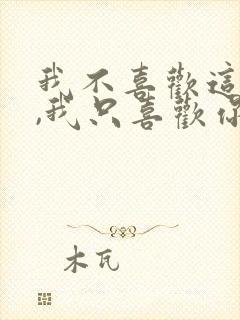 我不喜歡這
,我只喜歡你
木瓦